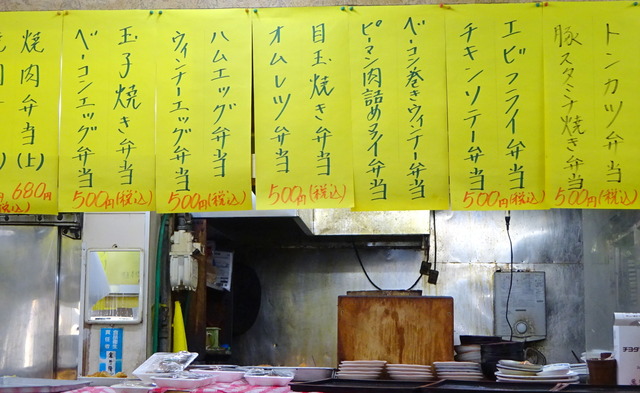 トンカツ弁当
豚スタミナ焼き弁当
500円(税込)
エビフライ弁当
チキンソテー弁当
500円(税込)
ベーコン巻きウィンナー弁当
ピーマン肉詰めフライ弁当
目玉焼き弁当
オムレツ弁当
500円(税込)
ハムエッグ弁当
ウィンナーエッグ弁当
500円(税込)
玉子焼き弁当
ベーコンエッグ弁当
500円(税込)
焼肉弁当(上)
680円